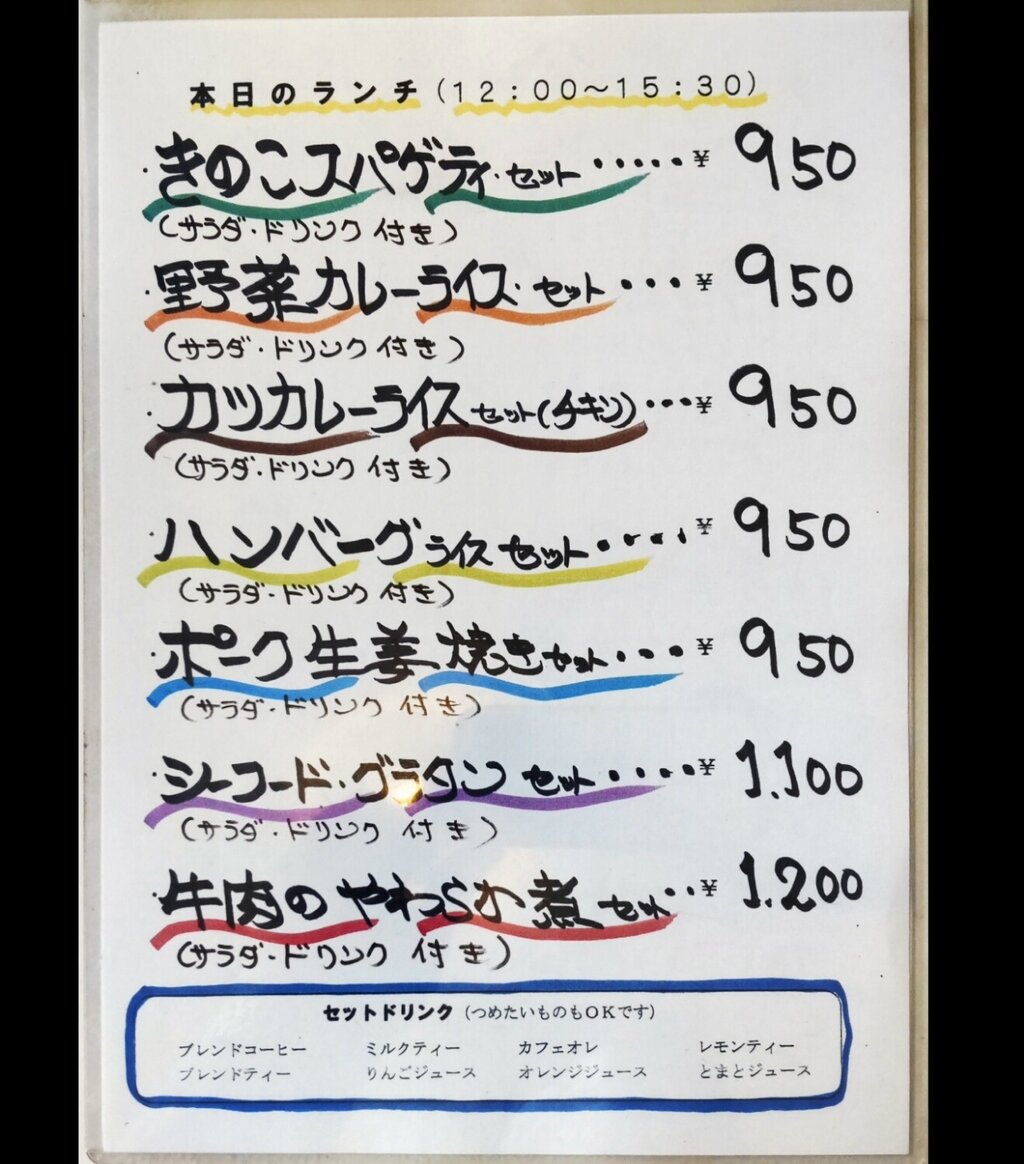 本日のランチ（12：00〜15：30）
・きのこスパゲティ・セット・・・・・¥ 950
（サラダ・ドリンク付き）
・野菜カレーライス・セット・・・¥ 950
（サラダ・ドリンク付き）
・カツカレーライスセット（チキン）・・・¥ 950
（サラダ・ドリンク付き）
ハンバーグライスセット・・・・・¥ 950
（サラダ・ドリンク付き）
・ポーク生姜焼きセット・・・¥ 950
（サラダ・ドリンク付き）
・シーフード・グラタンセット・・・・・¥ 1.100
（サラダ・ドリンク付き）
・牛肉のやわらか煮セット・・¥ 1.200
（サラダ・ドリンク付き）
セットドリンク（つめたいものもOKです）
ブレンドコーヒー ミルクティー カフェオレ レモンティー
ブレンドティー りんごジュース オレンジジュース とまとジュース